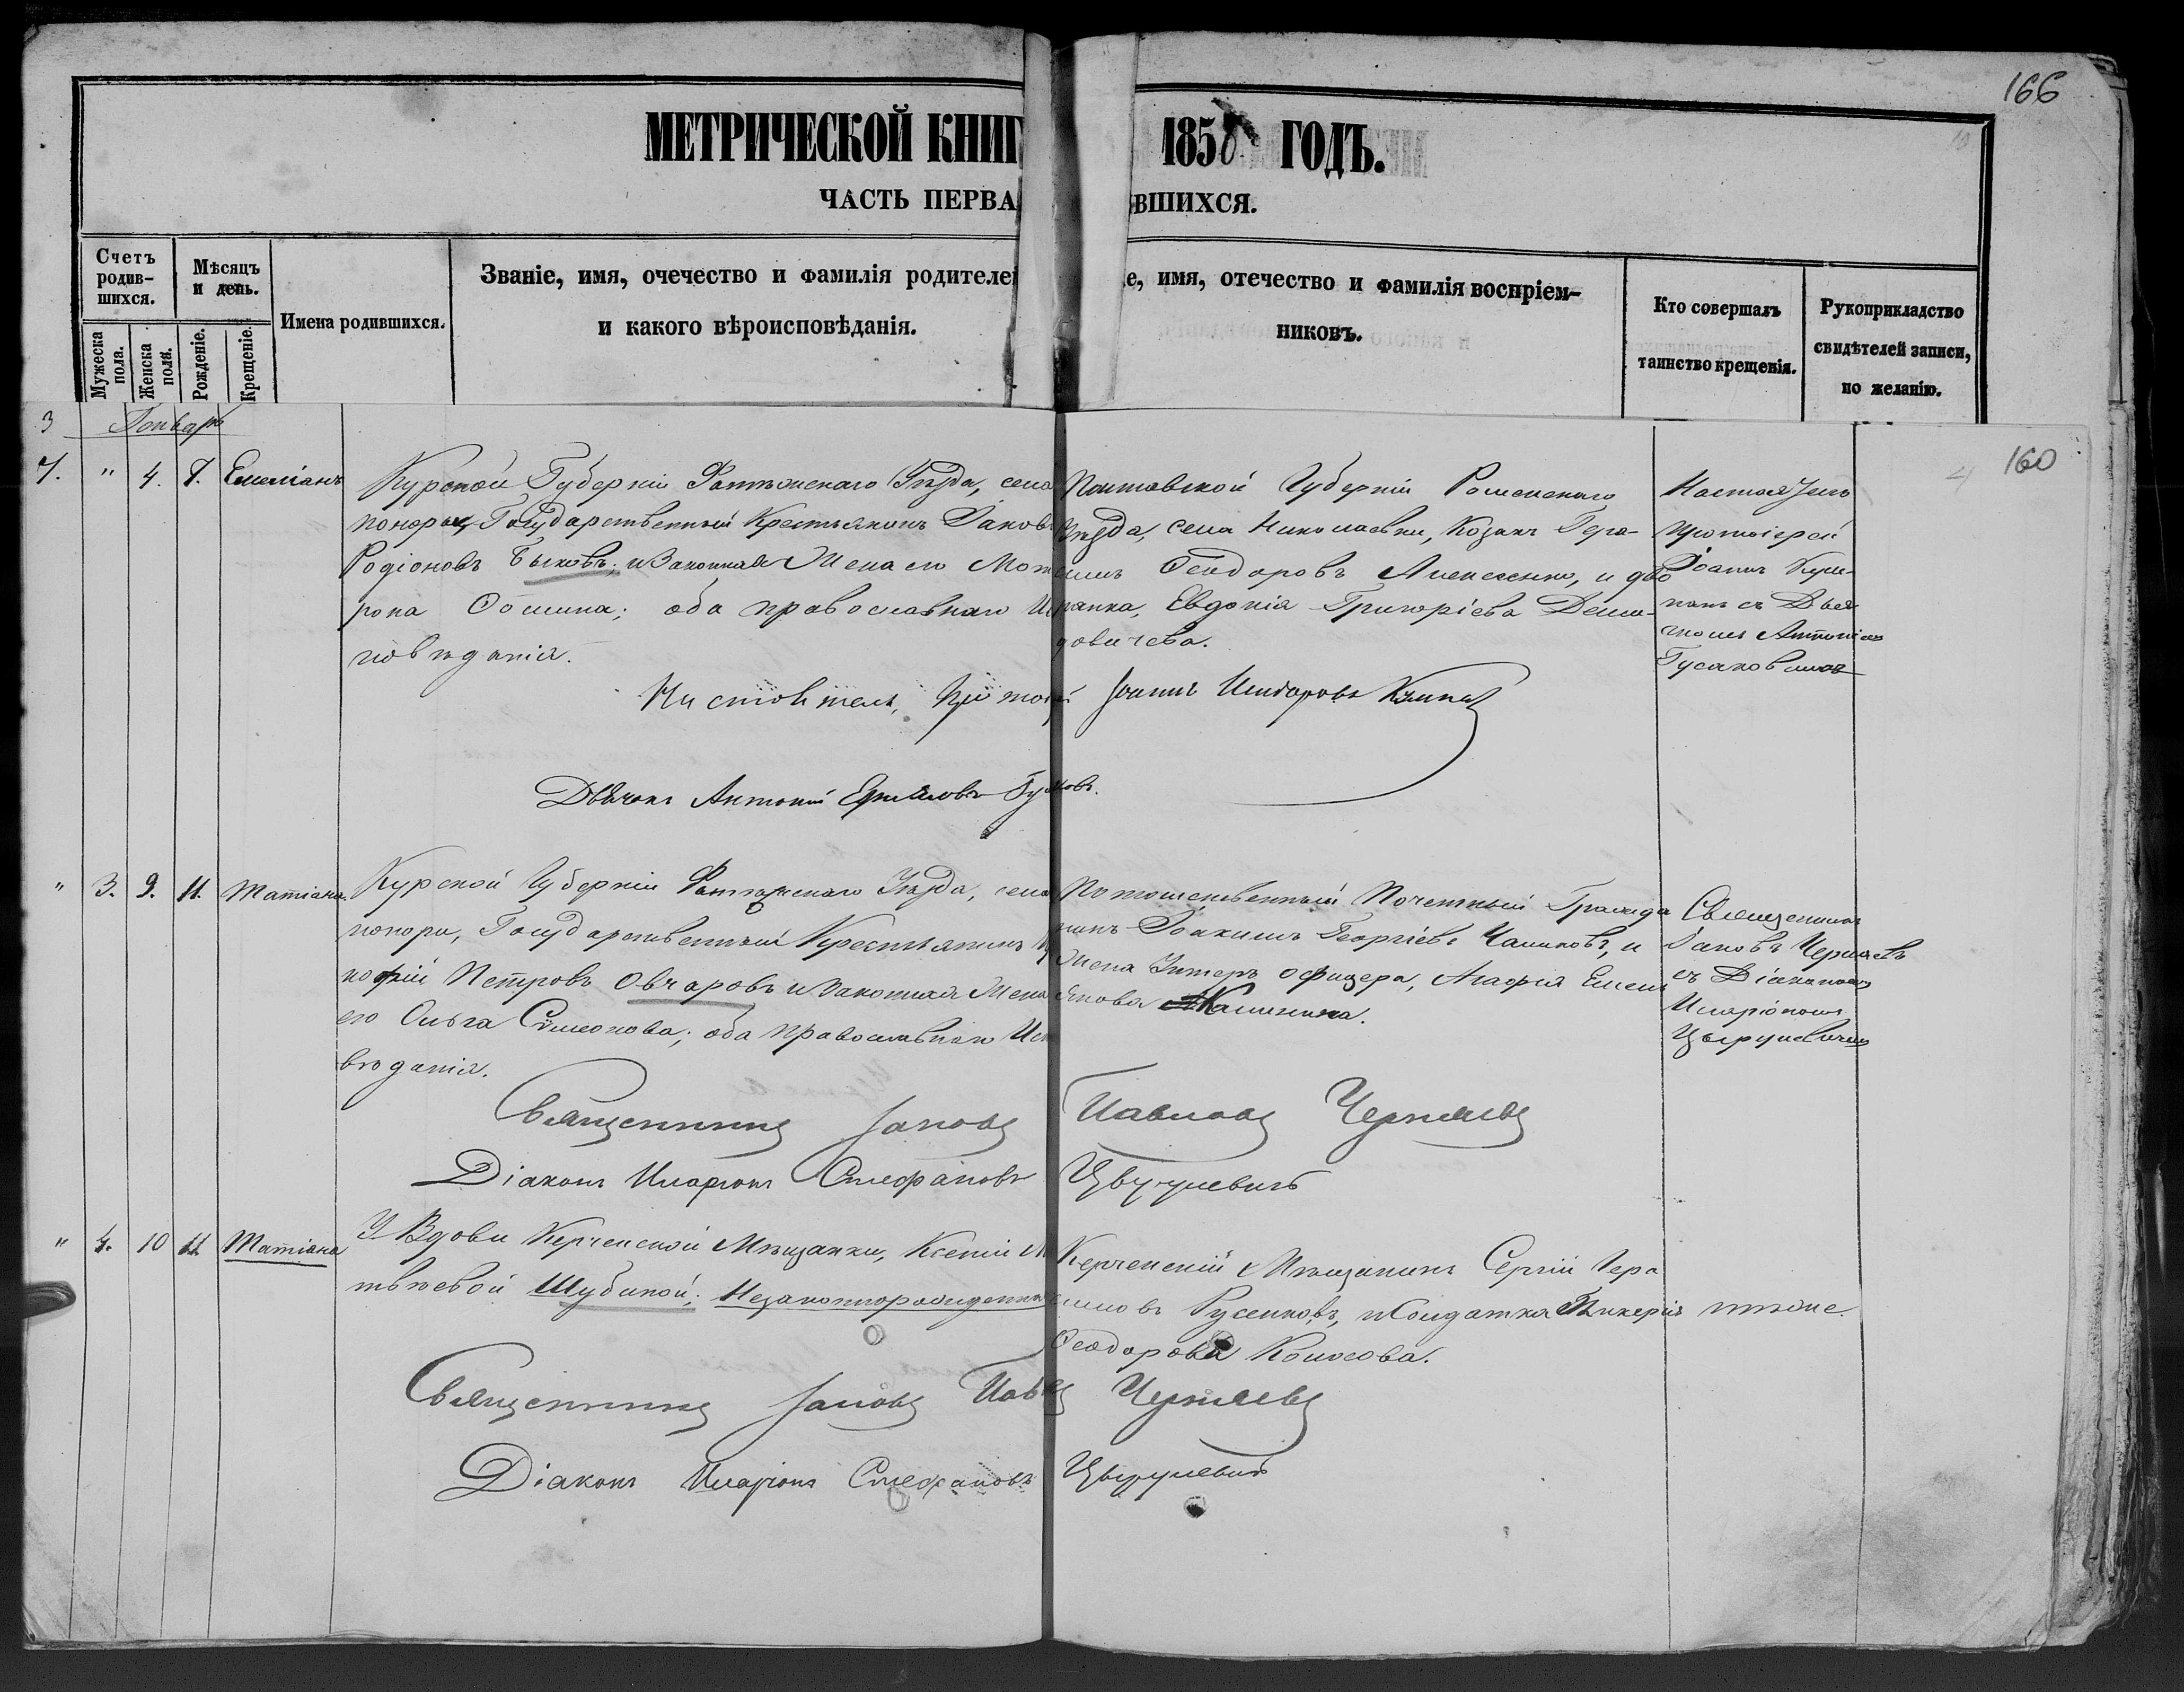 166
МЕТРИЧЕСКОЙ КНИГ 1858 ГОДЪ.
ЧАСТЬ ПЕРВА ВШИХСЯ.
Счетъ родив-шихся.
Мужеска пола.
Женска пола.
Мѣсяцъ и день.
Рожденіе.
Крещеніе.
Имена родившихся.
Званіе, имя, очечество и фамилія родителей
и какого вѣроисповѣданія.
е, имя, отечество и фамилія воспріем-
никовъ.
Кто совершалъ
таинство крещенія.
Рукоприкладство
свидѣтелей записи,
по желанію.
160
3
Январь
7. " 4. 7. Емеліанъ
Курской Губерніи Фатежскаго Уѣзда, села
Государственный Крестьянинъ Іаковъ
Родіоновъ Быковъ; и Законная Жена его
рона Ѳомина; оба православнаго Ис
повѣданія.
Полтавской Губерніи Роменскаго
Уѣзда, села Николаевки, Козакъ Гера-
симъ Ѳеодоровъ Алексенко, и дво
рянка, Евдокія Григоріева Деми-
довичева.
Настоятель
протоіерей
Іоаннъ
съ Дья
чкомъ Антоніемъ
Гусаковымъ
Настоятель, Протоіерей Іоаннъ
Дьячокъ Антоній
" 3. 9. 11. Татіана.
Курской Губерніи Фатежскаго Уѣзда, села
Государственный Крестьянинъ
кофій Петровъ Овчаровъ и Законная Жена
его Ольга Симеонова; оба православнаго Исп
вѣданія.
Потомственный Почетный Гражда
нинъ Іоакимъ Георгіевъ и
Жена Унтеръ офицера, Агафія Емель
янова Калинина.
Священникъ
Іаковъ Черняевъ
съ Діакономъ
Иларіономъ
Священникъ Іаковъ Павловъ Черняевъ
Діаконъ Иларіонъ Стефановъ
" 4. 10 11 Татіана
У Вдовы Керченской Мѣщанки, Ксеніи Ма
твѣевой Шубиной; Незаконнорожденна
Керченскій Мѣщанинъ Сергій Гера
симовъ Русенковъ, и Солдатка Гликерія
Ѳеодорова Колосова.
тѣже.
Священникъ Іаковъ Павловъ Черняевъ
Діаконъ Иларіонъ Стефановъ